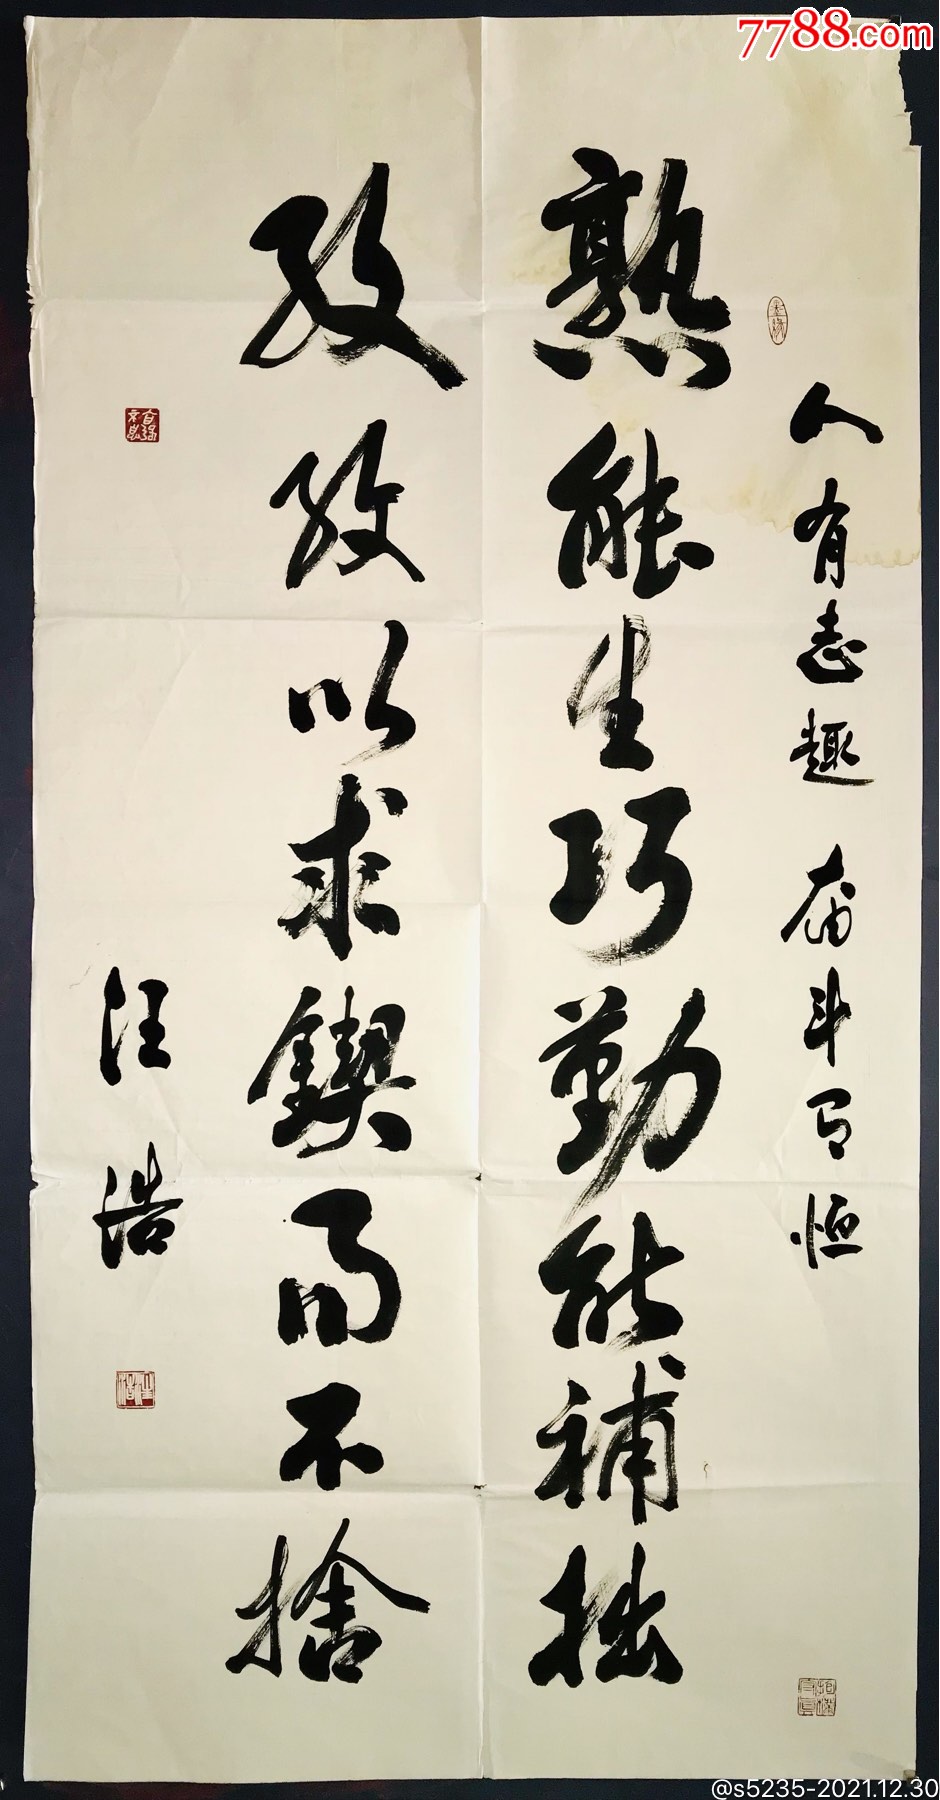 7788.com
人有志趣 奋斗有恒
熟能生巧勤能补拙
孜孜以求锲而不捨
汪浩
自强不息
@s5235-2021.12.30